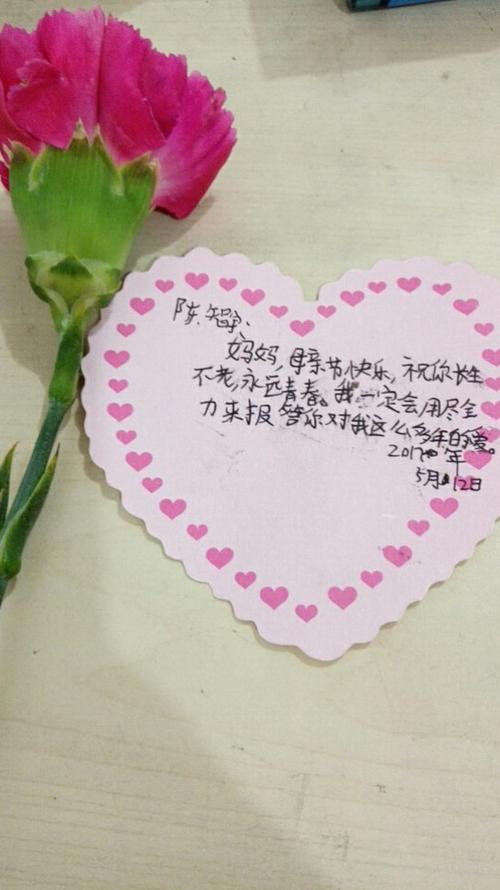 陈
妈妈,母亲节快乐,祝你长生
不老,永远青春。我一定会用尽全
力来报答你对我这么多年的爱。
2017年
5月12日